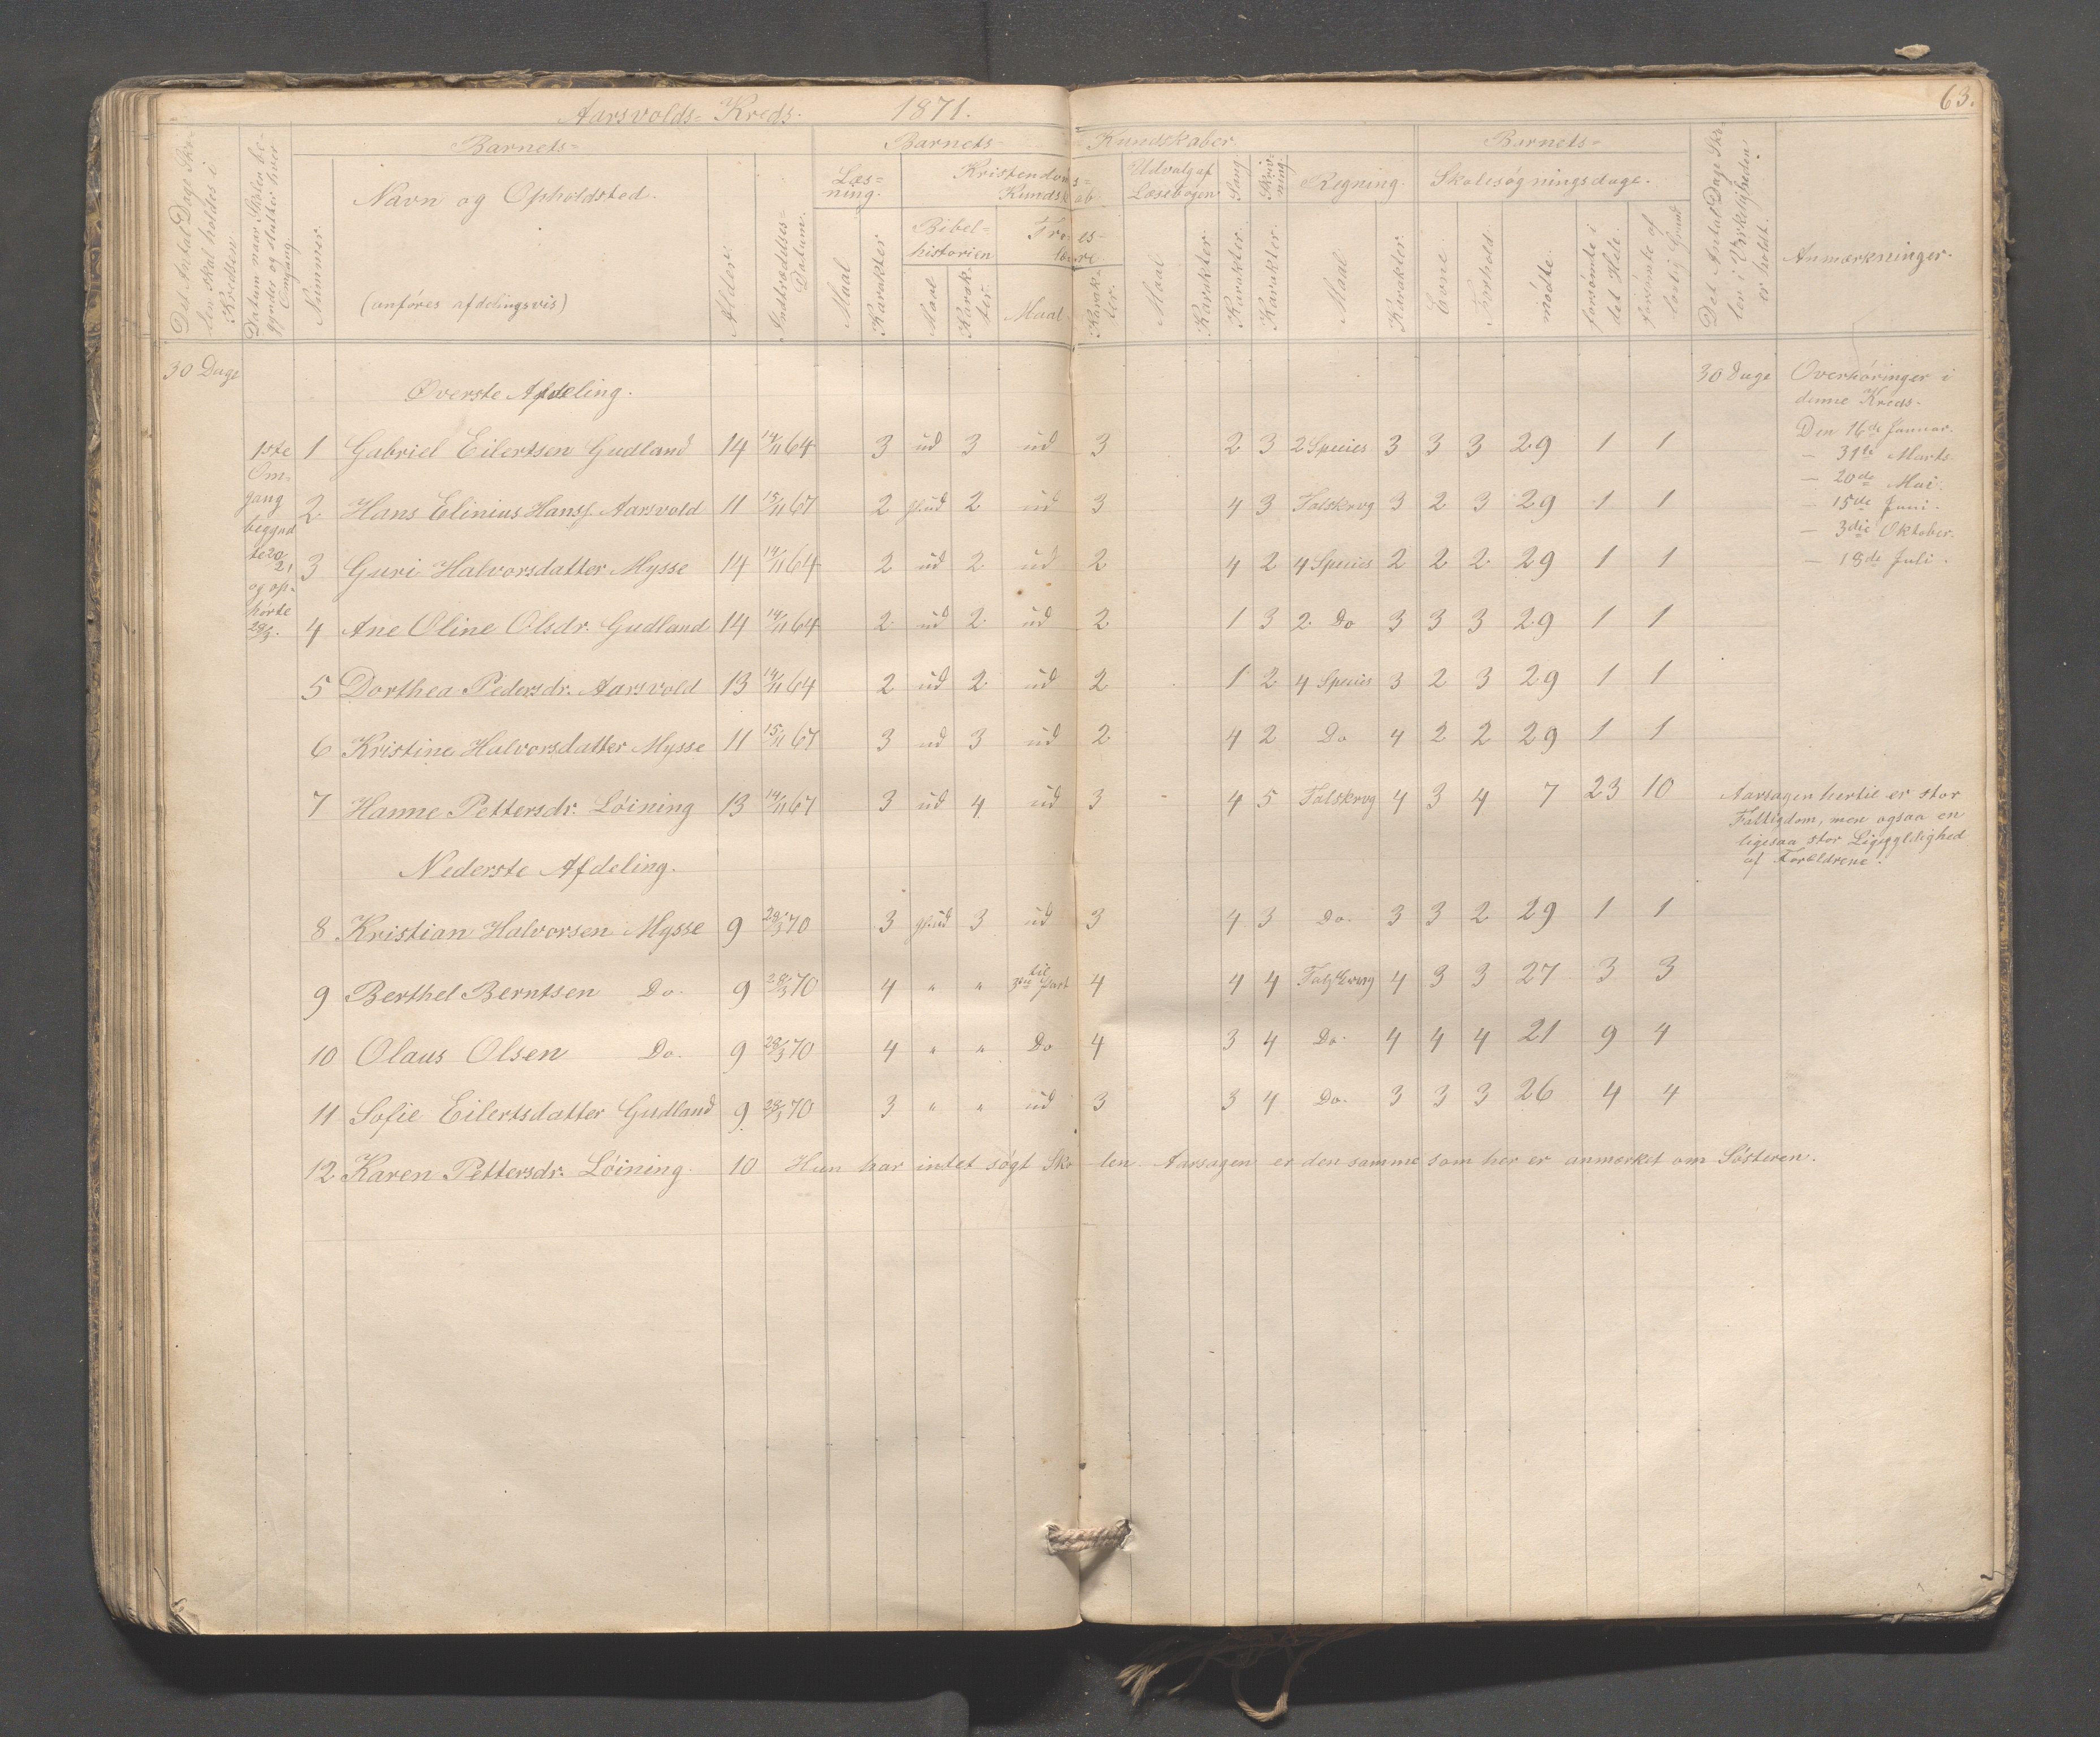 Aarsvolds- Kreds. 1871. 63.
Det Antal Dage Skolen skal holdes i Kredsen.
Datum naar Skolen begynder og slutter hver Omgang.
Barnets-
Nummer.
Navn og Opholdsted.
(anføres afdelingsvis)
Alder.
Indtrædelses-Datum.
Barnets- Kundskaber.
Læs-
ning.
Maal
Karakter
Kristendoms-
Kundskab.
Bibel-
historien
Maal
Karak-
ter.
Troes-
lære.
Maal.
Karak-
ter.
Udvalg af
Læsebogen
Maal
Karakter.
Sang
Karakter.
Skriv-
ning.
Karakter.
Regning.
Maal
Karakter.
Barnets-
Skolesøgningsdage.
Evne.
Forhold.
mødte.
forsømte i
det Hele.
forsømte af
lovlig Grund
Det Antal Dage Sko-
len i Virkeligheden
er holdt.
Anmærkninger.
30 Dage 30 Dage Overhøringer i
denne Kreds.
Øverste Afdeling.
Den 16de Januar.
— 31te Marts.
— 20de Mai.
— 15de Juni.
— 3die Oktober.
— 18de Juli.
1ste
Om-
gang
begynd
te 20/2,
og op-
hørte
29/3.
1 Gabriel Eilertsen Gudland 14 14/11 64 3 ud 3 ud 3 2 3 2 Species 3 3 3 29 1 1
2. Hans Elinius Hanss. Aarsvold 11 15/11 67 2 gl.ud 2 ud 3 4 3 Talskrvg 3 2 3 29 1 1
3 Guri Halvorsdatter Mysse 14 14/11 64 2 ud 2 ud 2 4 2 4 Species 2 2 2 29 1 1
4 Ane Oline Olsdr. Gudland 14 14/11 64 2 ud 2 ud 2 1 3 2 Do 3 3 3 29 1 1
5 Dorthea Pedersdr. Aarsvold 13 14/11 64 2 ud 2 ud 2 1 2 4 Species 3 2 3 29 1 1
6 Kristine Halvorsdatter Mysse 11 15/11 67 3 ud 3 ud 2 4 2 Do 4 2 2 29 1 1
7 Hanne Pettersdr. Løining 13 14/11 67 3 ud 4 ud 3 4 5 Talskrvg 4 3 4 7 23 10 Aarsagen hertil er stor
Fattigdom, men ogsaa en
ligesaa stor Ligegyldighed
af Forældrene.
Nederste Afdeling.
8 Kristian Halvorsen Mysse 9 28/3 70 3 gl.ud 3 ud 3 4 3 Do. 3 3 2 29 1 1
9 Berthel Berntsen Do. 9 28/3 70 4 " " til 3die Part 4 4 4 Talskrvg 4 3 3 27 3 3
10 Olaus Olsen Do. 9 28/3 70 4 " " Do 4 3 4 Do. 4 4 4 21 9 4
11 Sofie Eilertsdatter Gudland 9 28/3 70 3 " " ud 3 3 4 Do. 3 3 3 26 4 4
12 Karen Pettersdr. Løining. 10 Hun har intet søgt Skolen. Aarsagen er den samme som her er anmærket om Søsteren.